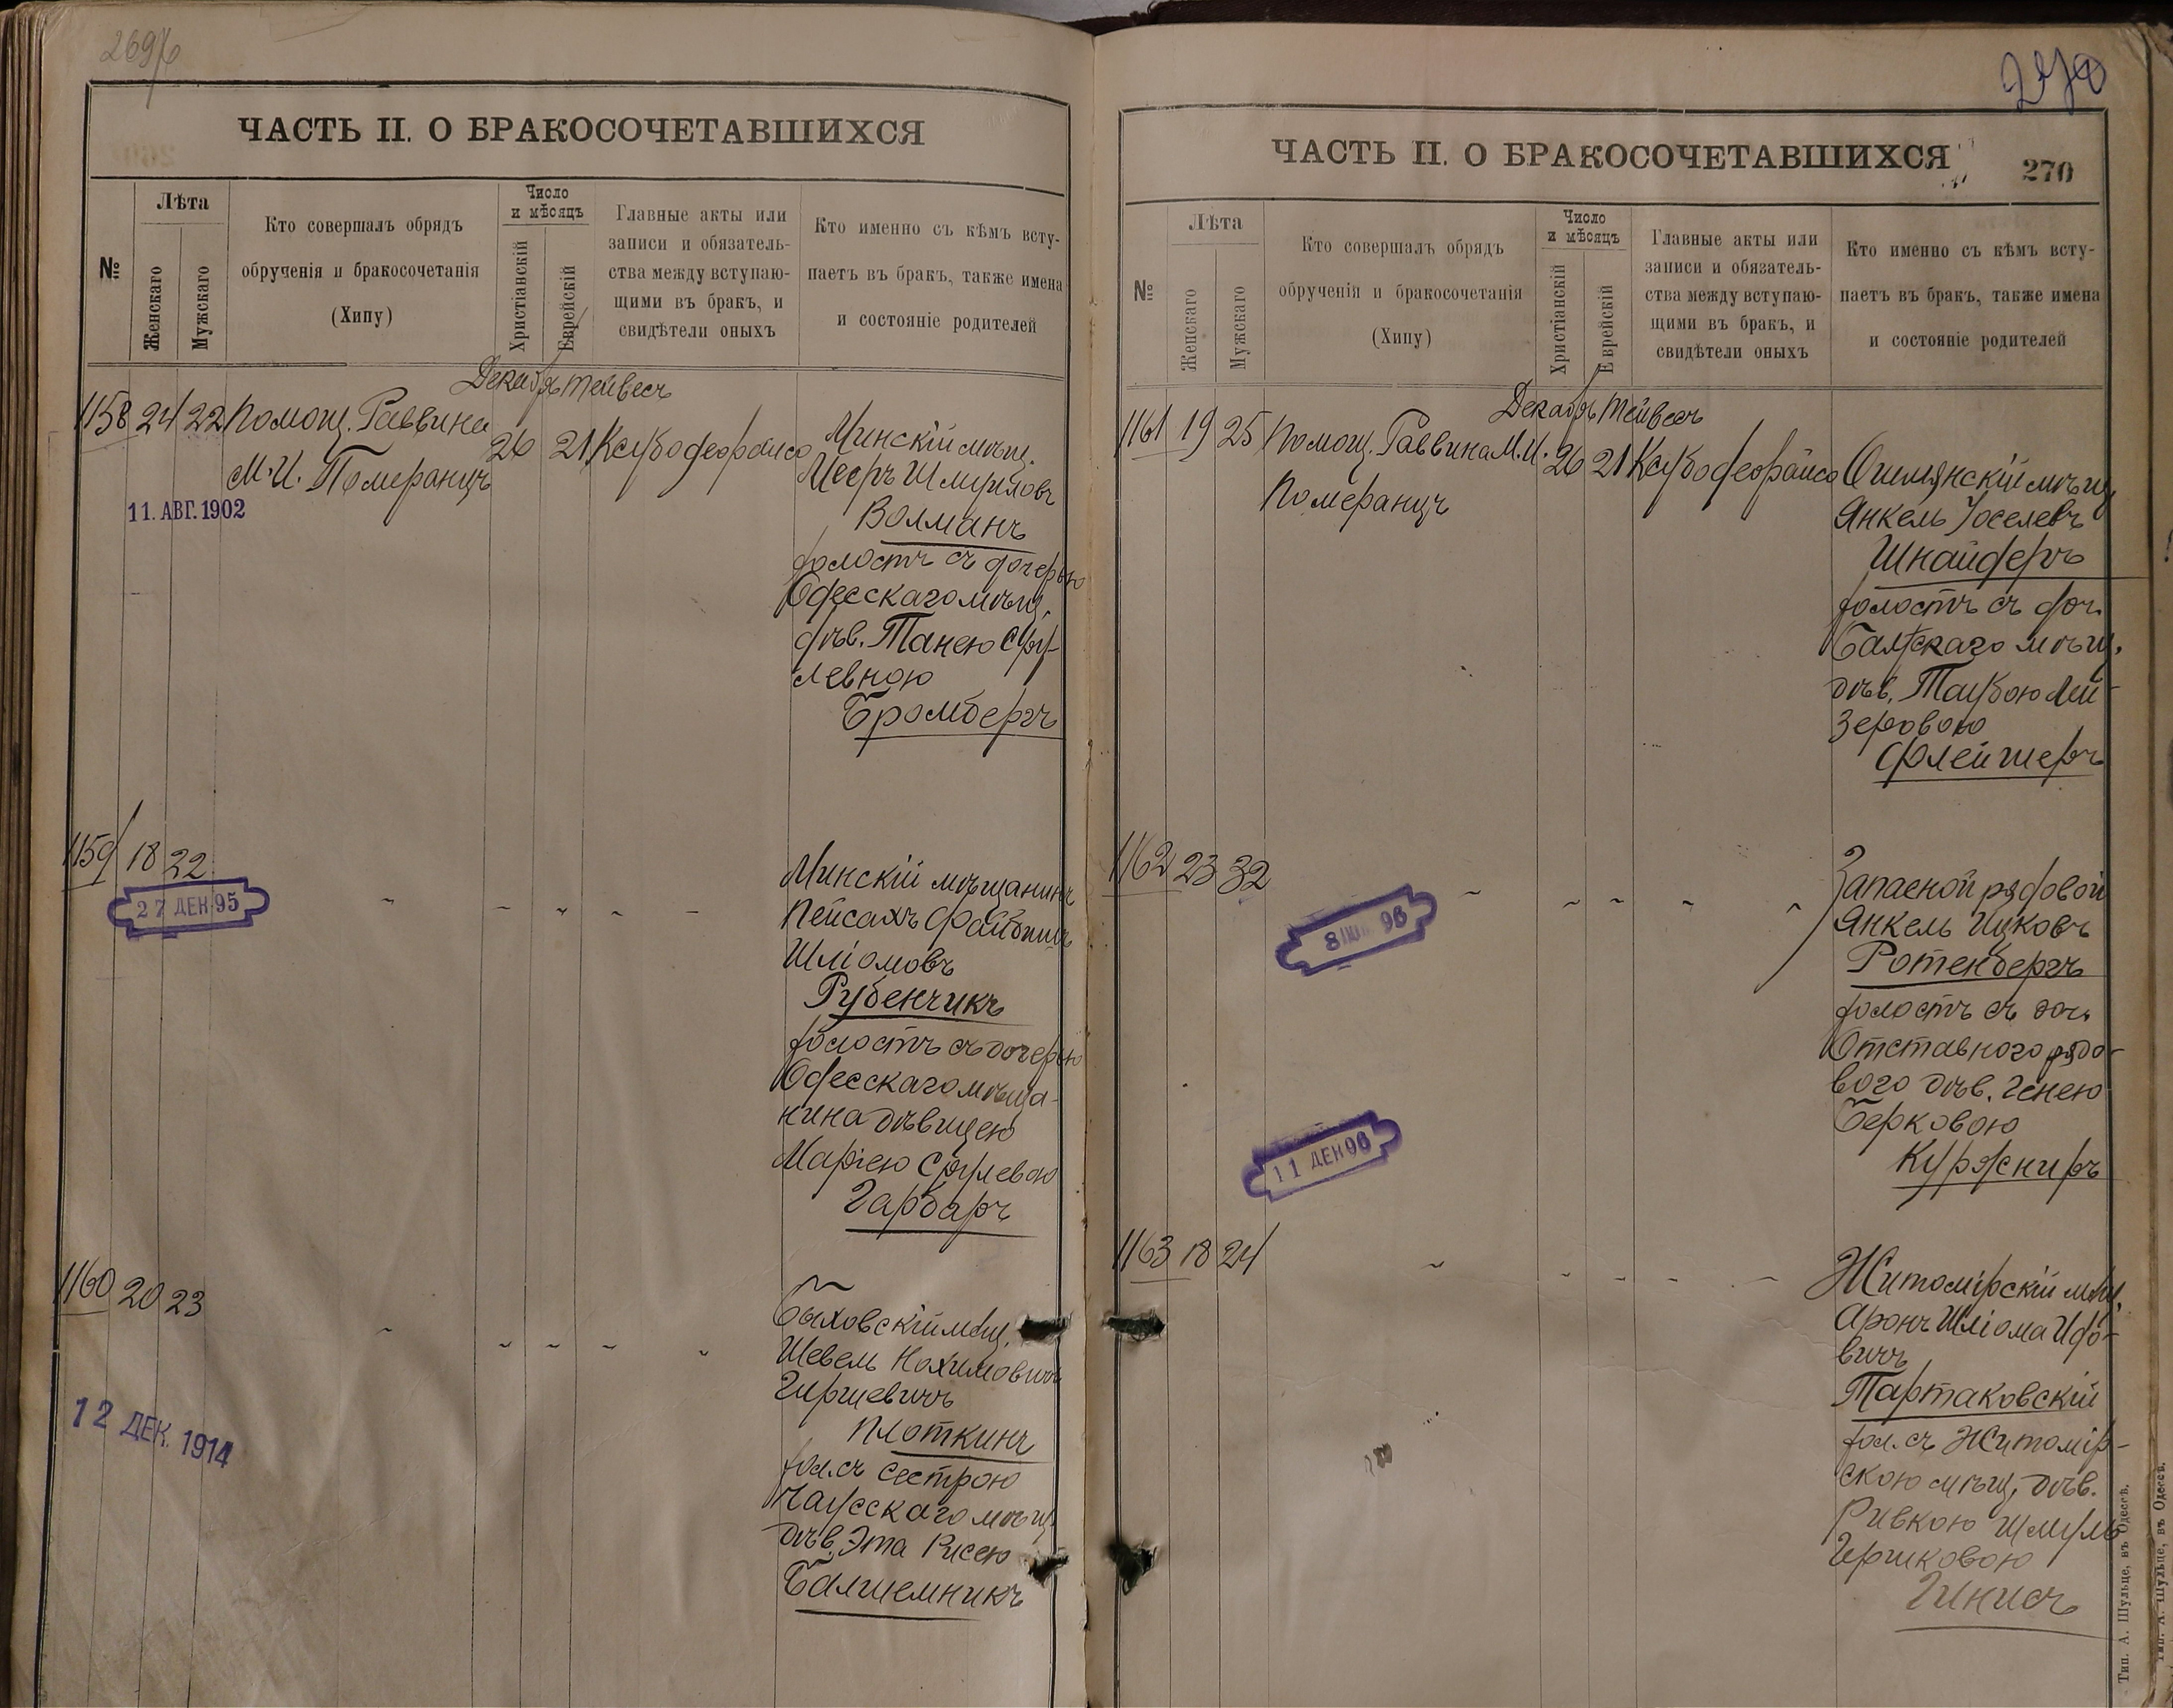 269
ЧАСТЬ II. О БРАКОСОЧЕТАВШИХСЯ
№
Лѣта
Женскаго
Мужскаго
Кто совершалъ обрядъ
обрученія и бракосочетанія
(Хипу)
Число
и мѣсяцъ
Христіанскій
Еврейскій
Главные акты или
записи и обязатель-
ства между вступаю-
щими въ бракъ, и
свидѣтели оныхъ
Кто именно съ кѣмъ всту-
паетъ въ бракъ, также имена
и состояніе родителей
Декабрь Тейвесъ
1158 24 22 Помощ. Раввина
М. И. Померанцъ
26 21
11. АВГ. 1902
Минскій мѣщ.
Мееръ Шмуиловъ
Волманъ
холостъ съ дочерью
Одесскаго мѣщ.
дѣв. Танею Сру-
левною
Бромбергъ
1159 18 22
27 ДЕН 95
Минскій мѣщанинъ
Пейсахъ Файбишъ
Шліомовъ
Рубенчикъ
холостъ съ дочерью
Одесскаго мѣща-
нина дѣвицею
Маріею Срулевою
Гарбаръ
1160 20 23
12 ДЕК. 1914
Быховскій мѣщ.
Шевель Нохимовичъ
Гиршевичъ
Плоткинъ
хол. съ сестрою
Чаусскаго мѣщ.
дѣв. Эта Рисею
Балшемникъ
270
ЧАСТЬ II. О БРАКОСОЧЕТАВШИХСЯ
270
№
Лѣта
Женскаго
Мужскаго
Кто совершалъ обрядъ
обрученія и бракосочетанія
(Хипу)
Число
и мѣсяцъ
Христіанскій
Еврейскій
Главные акты или
записи и обязатель-
ства между вступаю-
щими въ бракъ, и
свидѣтели оныхъ
Кто именно съ кѣмъ всту-
паетъ въ бракъ, также имена
и состояніе родителей
Декабрь Тейвесъ
1161 19 25 Помощ. Раввина М. И.
Померанцъ
26 21
Ошмянскій мѣщ
Янкель Іоселевъ
Шнайдеръ
холостъ съ доч.
Балтскаго мѣщ.
дѣв. Таубою Лей-
зеровою
Флейшеръ
1162 23 32
96
11 ДЕН 96
Запасной рядовой
Янкель Ицковъ
Ротенбергъ
холостъ съ доч.
Отставного рядо-
вого дѣв. Генею
Берковою
Куржниръ
1163 18 24
Житомірскій мѣщ.
Аронъ Шліома Идо-
вичъ
Тартаковскій
хол. съ Житомір-
скою мѣщ. дѣв.
Ривкою Шмуль
Гершковою
Гинисъ
Тип. А. Шульце, въ Одессѣ.
Тип. А. Шульце, въ Одессѣ.